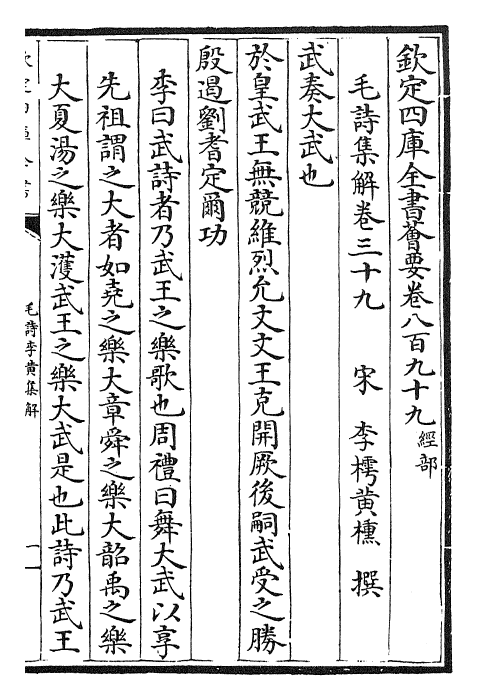 欽定四庫全書薈要卷八百九十九 經部
毛詩集解卷三十九 宋 李樗黃櫄 撰
武奏大武也
於皇武王無競維烈允文文王克開厥後嗣武受之勝
殷遏劉耆定爾功
李曰武詩者乃武王之樂歌也周禮曰舞大武以享
先祖謂之大者如堯之樂大章舜之樂大韶禹之樂
大夏湯之樂大濩武王之樂大武是也此詩乃武王
毛詩李黃集解